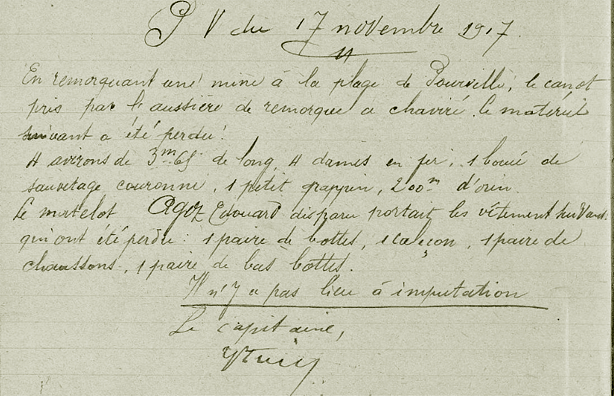 P V du 17 novembre 1917.
En remorquant une mine à la plage de Pourville, le canot
pris par l'aussière de remorque a chaviré. Le matériel
suivant a été perdu:
4 avirons de 3m65 de long, 4 dames en fer, 1 boué de
sauvetage couronne, 1 petit grappin, 200m d'orin.
Le matelot Agoz Edouard disparu portait les vêtement suivant
qui ont été perdu: 1 paire de bottes, 1 caleçon, 1 paire de
chaussons, 1 paire de bas bottes.
Il n'y a pas lieu à imputation
Le capitaine,